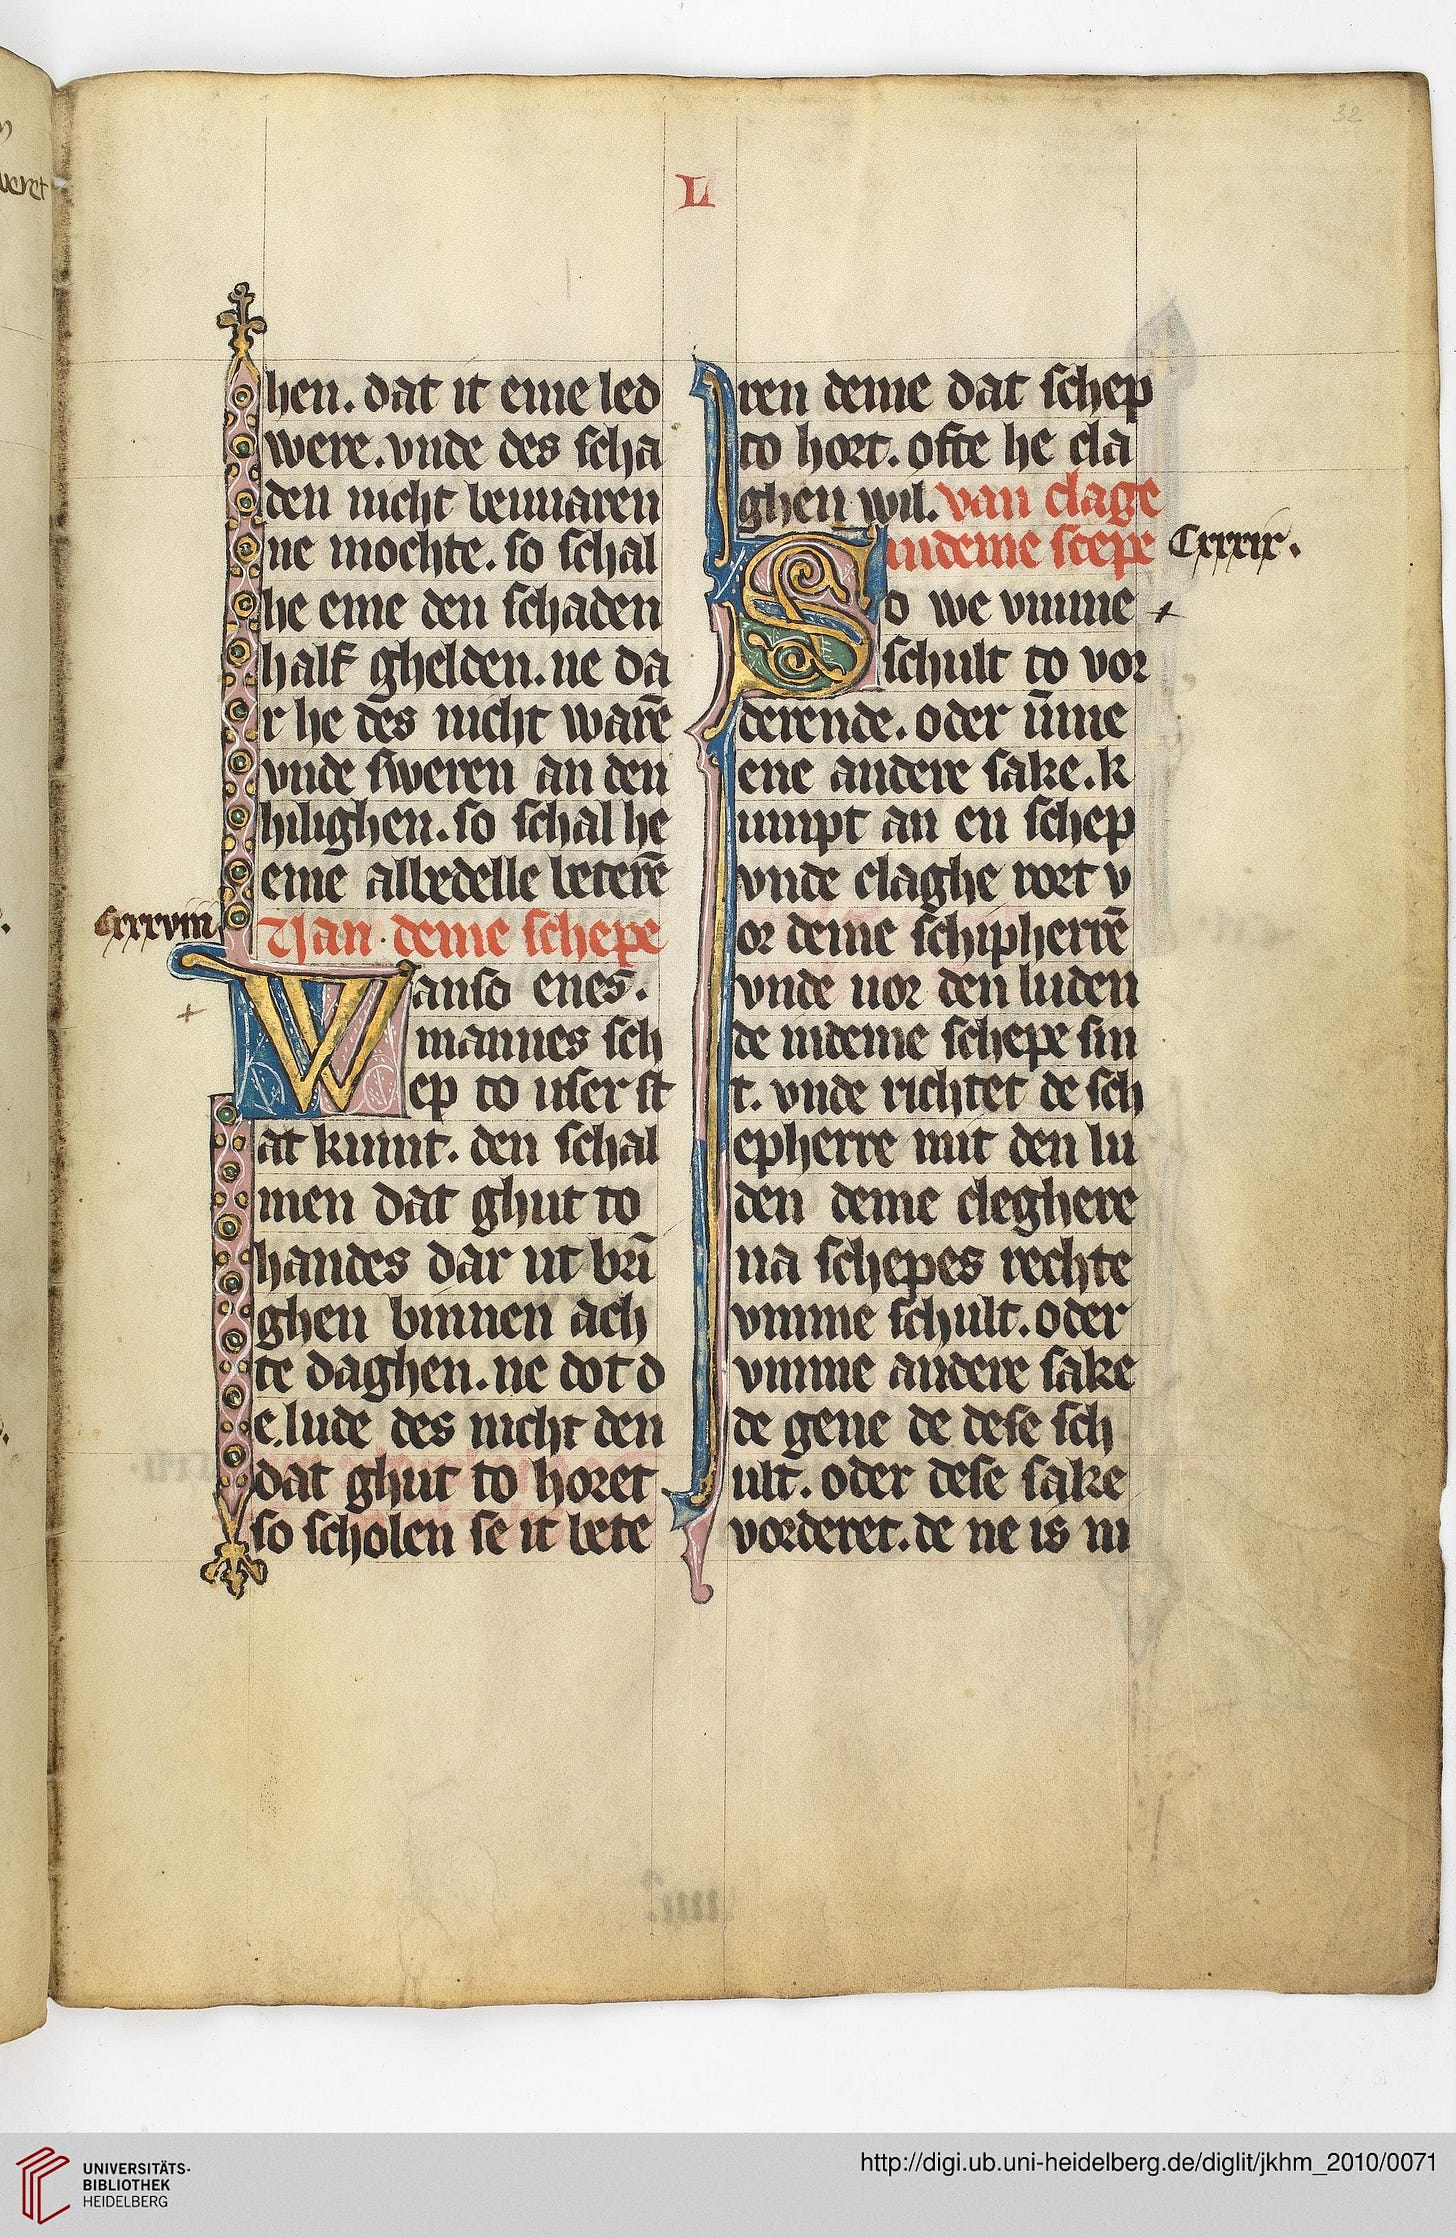 32
L
hen. dat it eme led
were. vnde des scha
den nicht bewaren
ne mochte. so schal
he eme den schaden
half ghelden. ne da
r he des nicht warē
vnde sweren an den
hilighen. so schal he
eme albedelle beterē
Cxxxviii
Van deme schepe
Wanso enes.
mannes sch
ep to user st
at kumt. den schal
men dat ghut to
handes dar ut bri̅
ghen binnen ach
te daghen. ne dot d
e lude des nicht den
dat ghut to horet
so scholen se it bete
ren deme dat schep
to hort. ofte he cla
ghen wil. van clage
indeme scepe Cxxxix.
So we vmme +
schult to vor
derende. oder ūme
ene andere sake. k
umpt an en schep
vnde claghe vort v
or deme schipherrē
vnde uor den luden
de indeme schepe sin
t. vnde richtet de sch
epherre mit den lu
den deme cleghere
na schepes rechte
vmme schult. oder
vmme andere sake
de gene de dese sch
ult. oder dese sake
vorderet. de ne is ni
UNIVERSITÄTS-
BIBLIOTHEK
HEIDELBERG
http://digi.ub.uni-heidelberg.de/diglit/jkhm_2010/0071